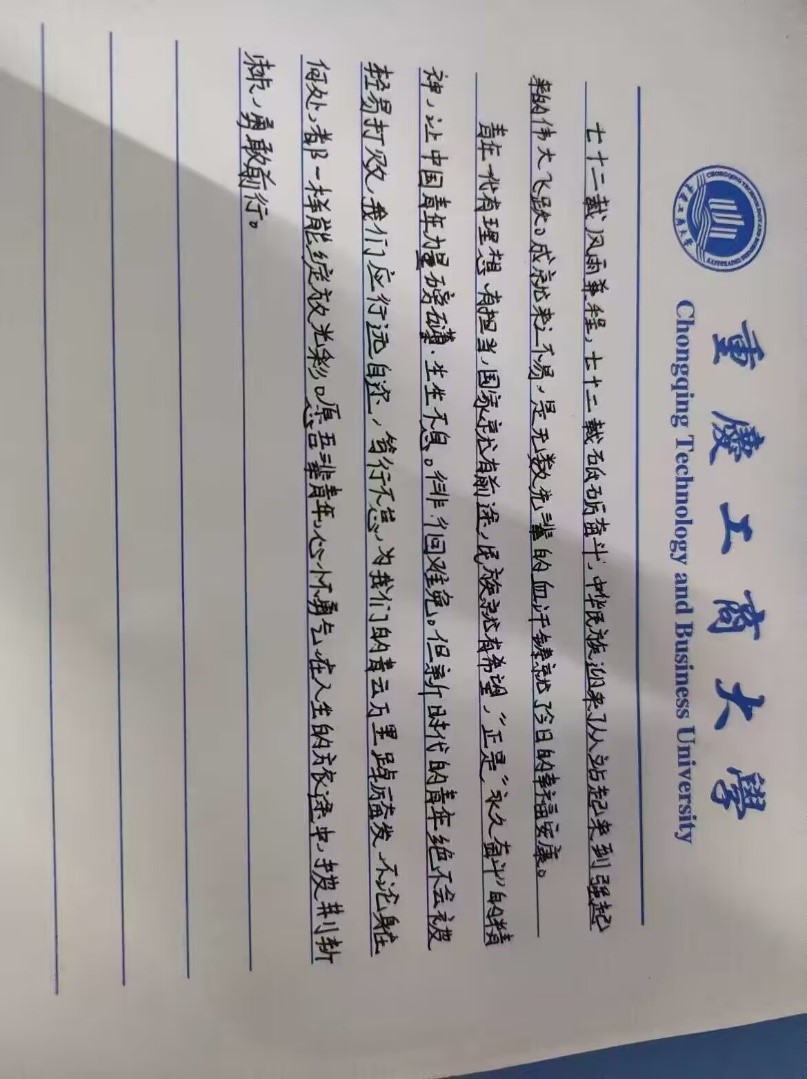 重慶工商大學
Chongqing Technology and Business University
七十二载风雨兼程，七十二载砥砺奋斗，中华民族迎来了从站起来到强起
来的伟大飞跃。成就来之不易，是无数先辈的血汗铸就了今日的幸福安康。
青年一代有理想，有担当，国家就有前途，民族就有希望，”正是“永久奋斗”的精
神，让中国青年力量磅礴，生生不息。徘徊难免。但新时代的青年绝不会被
轻易打败，我们应行远自迩，笃行不怠，为我们的青云万里踔厉奋发，不论身在
何处，都一样能绽放光彩。愿吾辈青年，心怀勇气，在人生的旅途中，披荆斩
棘，勇敢前行。